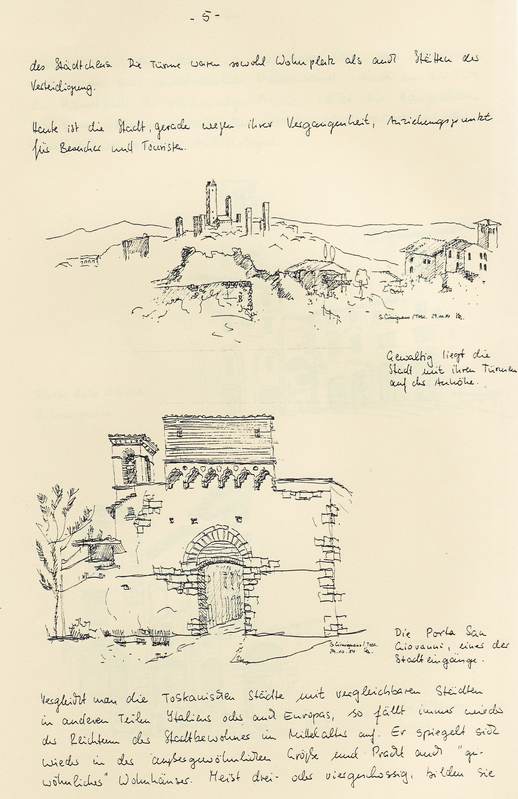 - 5 -
des Städtchens. Die Türme waren sowohl Wohnplatz als auch Stätten der
Verteidigung.
Heute ist die Stadt, gerade wegen ihrer Vergangenheit, Anziehungspunkt
für Besucher und Touristen.
S. Gimignano / Tosc.
Gewaltig liegt die
Stadt mit ihren Türmen
auf der Anhöhe.
S. Gimignano / Tosc.
Die Porta San
Giovanni, einer der
Stadteingänge.
Vergleicht man die Toskanischen Städte mit vergleichbaren Städten
in anderen Teilen Italiens oder auch Europas, so fällt immer wieder
der Reichtum der Stadtbewohner im Mittelalter auf. Er spiegelt sich
wieder in der außergewöhnlichen Größe und Pracht auch "ge-
wöhnlicher" Wohnhäuser. Meist drei- oder viergeschossig, bilden sie